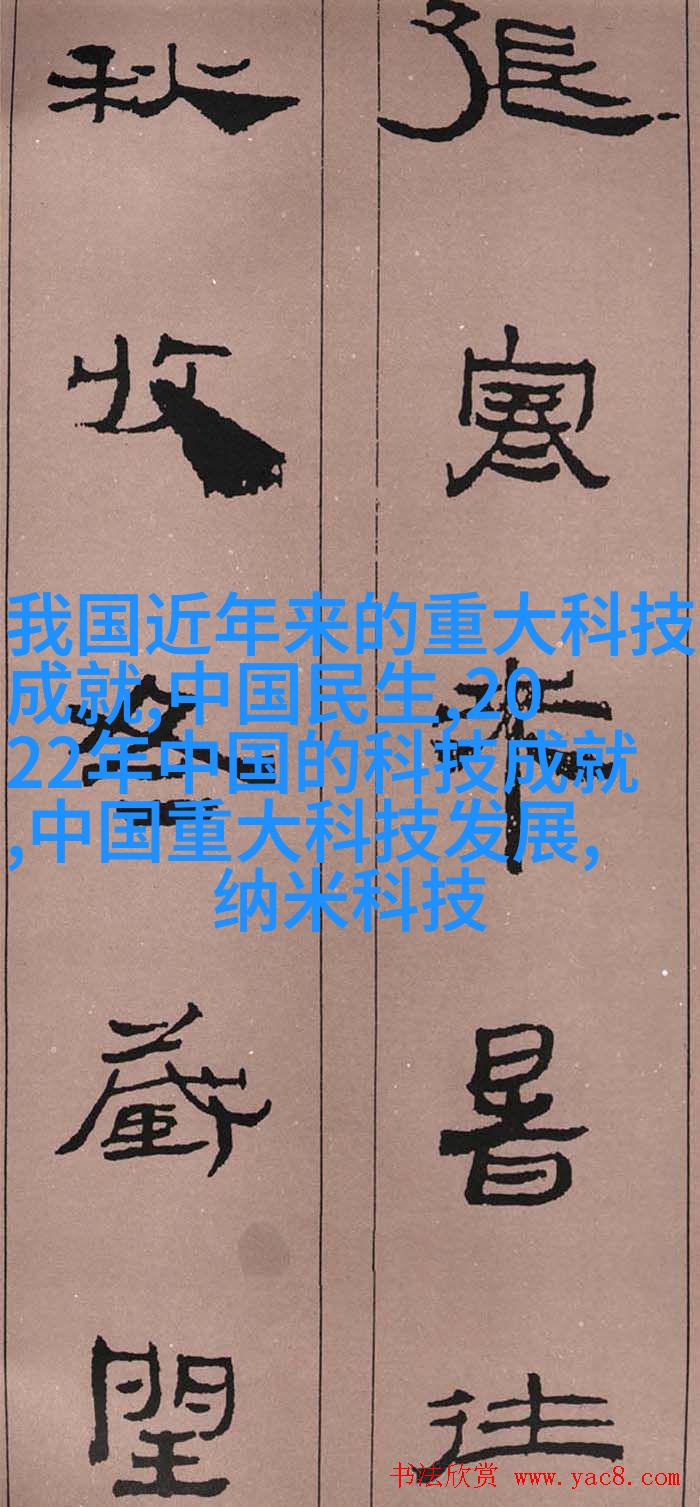 張寒來暑往
秋收冬藏閏
我国近年来的重大科技
成就,中国民生,20
22年中国的科技成就
,中国重大科技发展,
纳米科技
书法欣赏 www.yac8.com